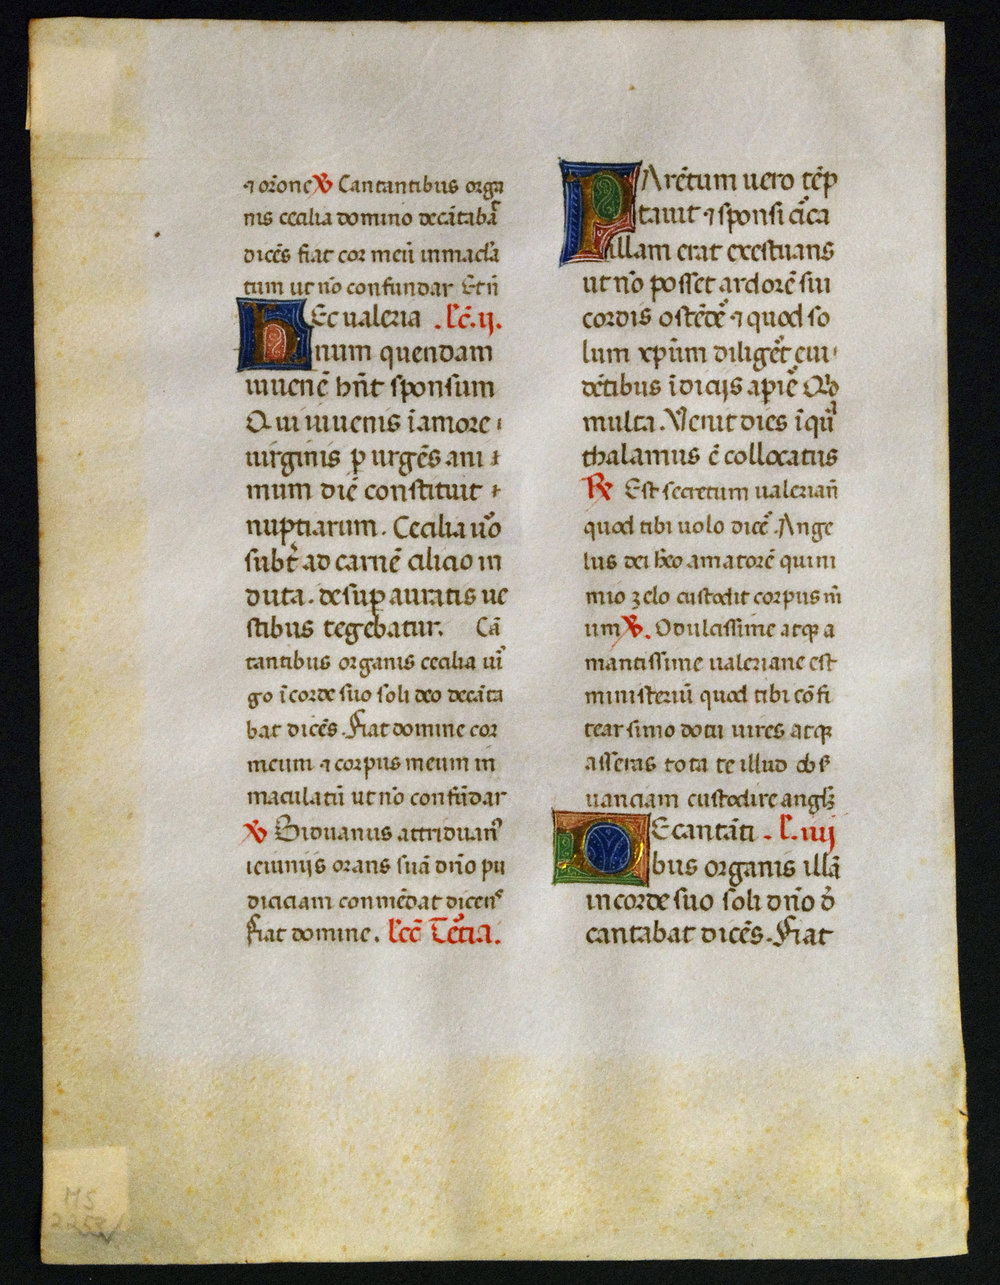 ⁊ or̄one ℣ Cantantibus orga
nis cecilia domino decātabā
dicēs fiat cor meū inmacl̄a
tum ut nō confundar Et ē
hEc ualeria .lc̄. ij.
num quendam
iuuenē hn̄t sponsum
Qui iuuenis īamore
uirginis ꝑ urgēs ani
mum diē constituit
nuptiarum. Cecilia uō
subt̄ ad carnē cilicio in
duta. desuꝑ auratis ue
stibus tegebatur. Cā
tantibus organis cecilia ui
go ī corde suo soli deo decāta
bat dicēs. Fiat domine cor
meum ⁊ corpus meum in
maculatū ut nō confūdar
℣ Biduanis ac triduan̄
ieiunijs orans suā dn̄o pu
diciciam conmēdat dicens
Fiat domine. lcc̄ Tētia.
PArētum uero tēp
tauit ⁊ sponsi cīca
illam erat exestuans
ut nō posset ardorē sui
cordis ostēdē ⁊ quod so
lum xp̄um diligēt eui
dētibus īdicijs apiē Qd
multa. Uenit dies īquā
thalamus ē collocatus
℟ Est secretum ualerian̄
quod tibi uolo dicē. Ange
lus dei hēo amatorē qui ni
mio zelo custodit corpus m̄
um ℣. O dulcissime atqꝫ a
mantissime ualeriane est
ministeriū quod tibi cōfi
tear simo docu uires atqꝫ
asseras tota te illud obs
uanciam custodire angl̄ꝫ
DEcantāti .l. iiij
bus organis illā
in corde suo soli dn̄o d̄
cantabat dicēs. Fiat
MS
2253